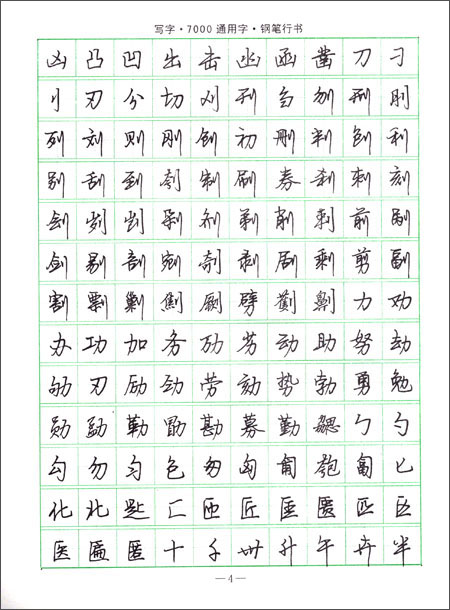 写字·7000通用字·钢笔行书
凶 凸 凹 出 击 幽 函 凿 刀 刁
刂 刃 分 切 刈 刊 刍 刎 刑 刖
列 刘 则 刚 创 初 删 判 刨 利
别 刮 到 刳 制 刷 券 刹 刺 刻
刽 刿 剁 剃 削 剌 前 剐
剑 剔 剖 剜 剞 剥 剧 剩 剪 副
割 剽 剿 劁 劂 劈 劐 劓 力 劝
办 功 加 务 劢 劣 动 助 努 劫
劬 励 劲 劳 劾 势 勃 勇 勉
勋 勐 勒 勖 勘 募 勤 勰 勹 勺
勾 勿 匀 包 匆 匈 匍 匏 匐 匕
化 北 匙 匚 匝 匠 匡 匮 匹 区
医 匾 匿 十 千 卅 升 午 卉 半
—4—